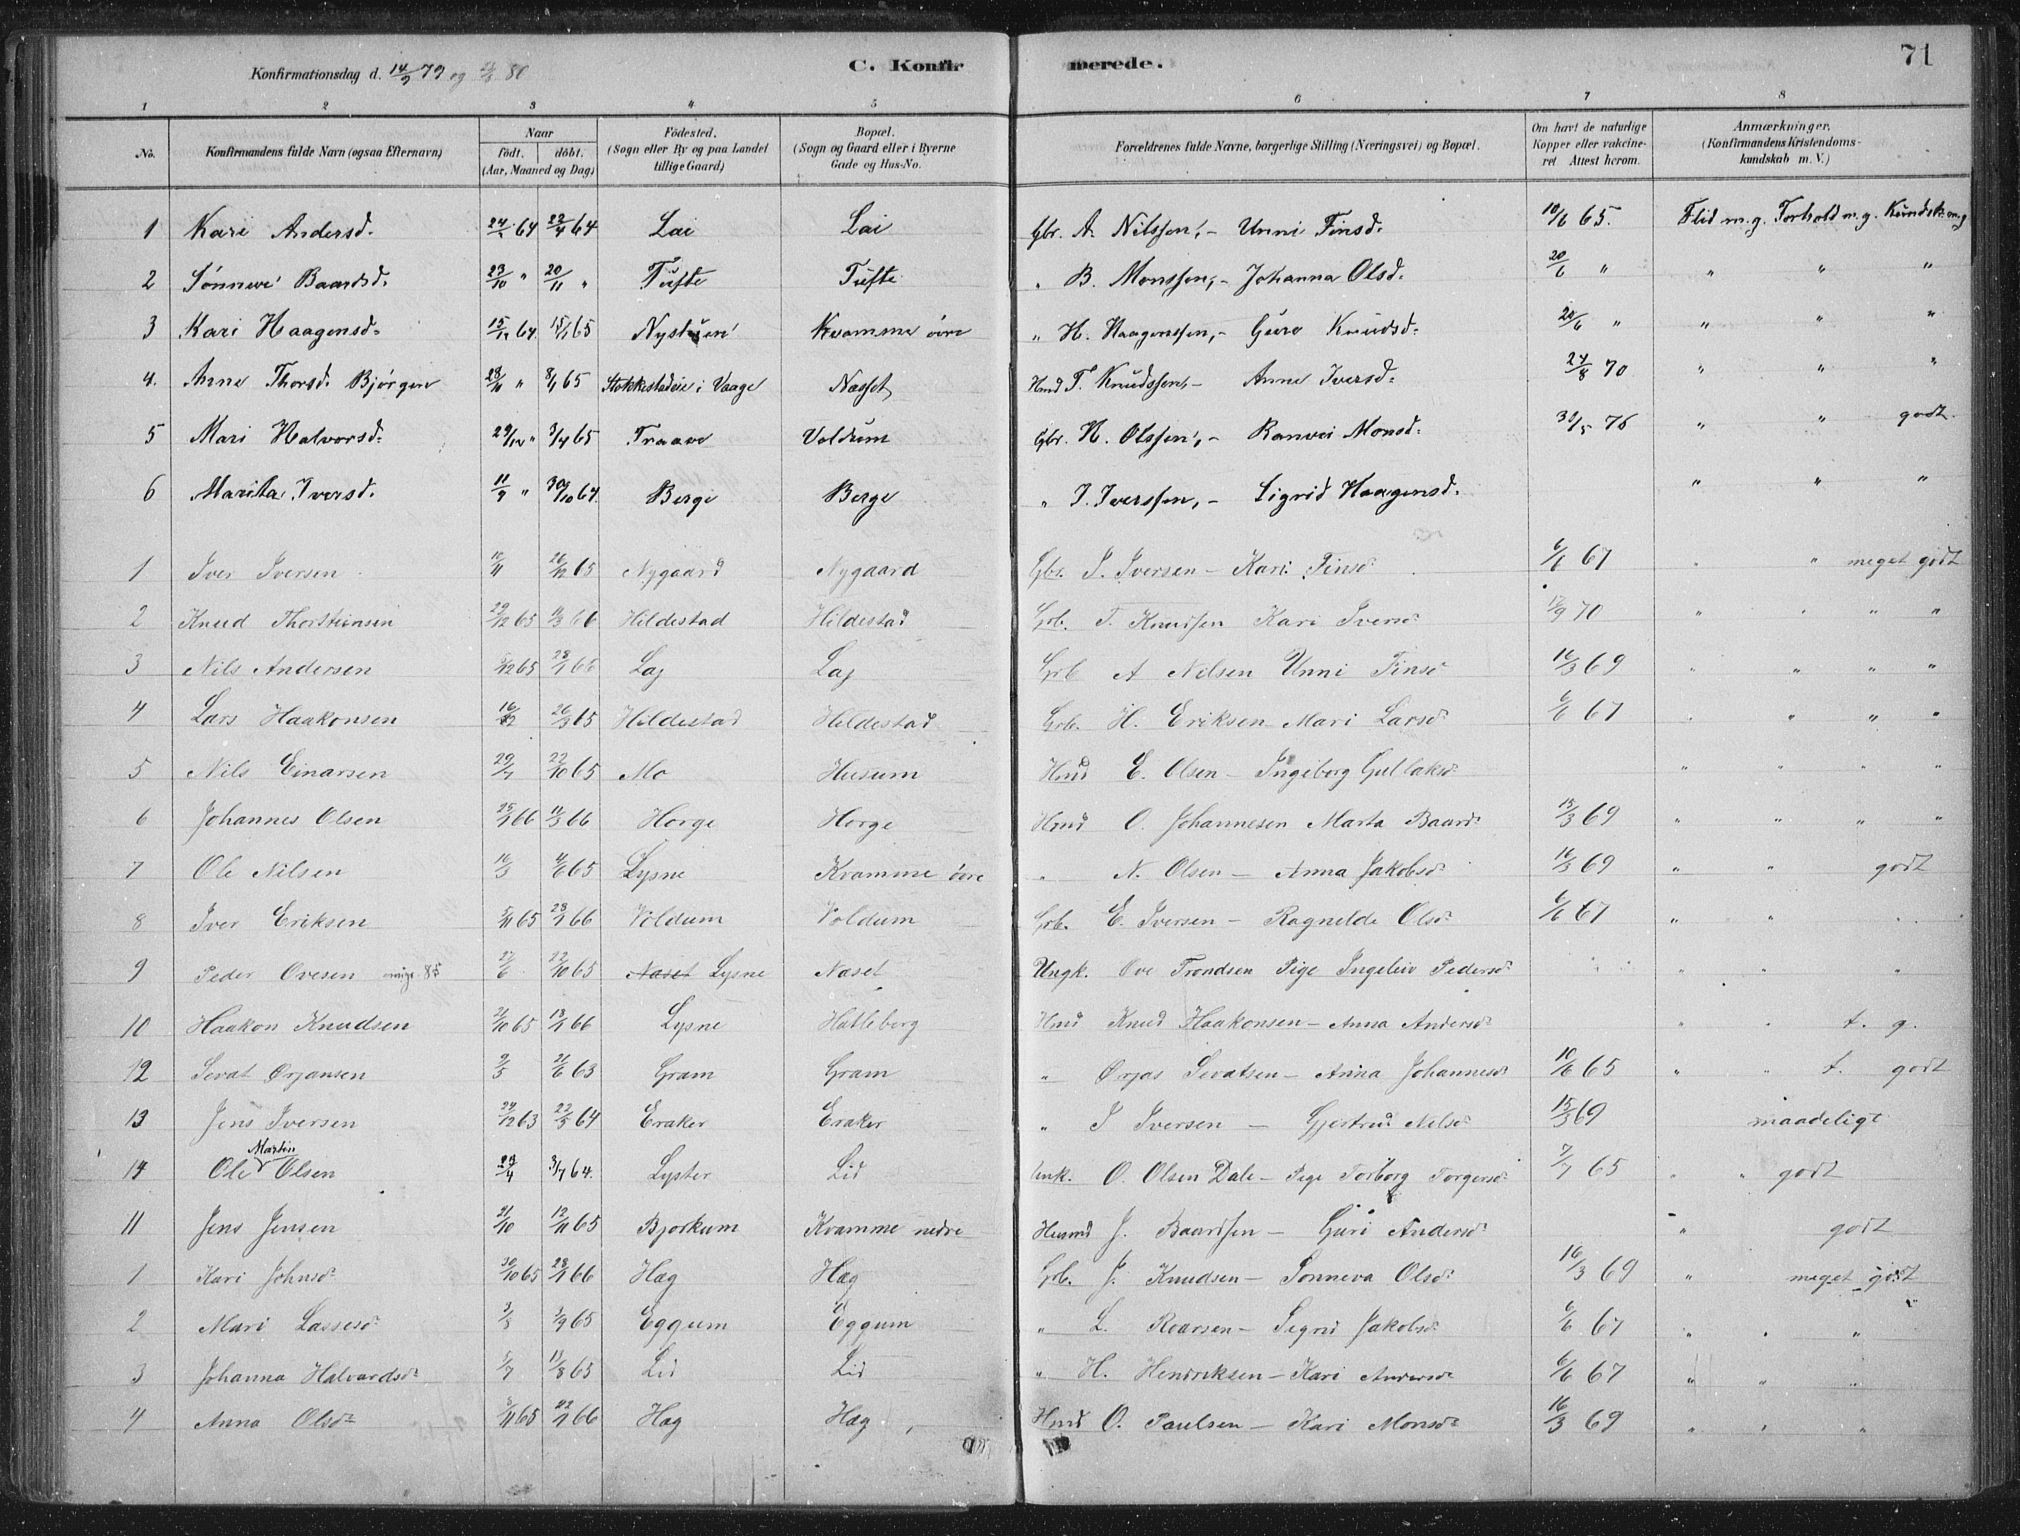 71
Konfirmationsdag d. 14/9 79 og 80
C. Konfirmerede.
1 2 3 4 5 6 7 8
No. Konfirmandens fulde Navn (ogsaa Efternavn) Naar födt. döbt. (Aar, Maaned og Dag) Födested. (Sogn eller By og paa Landet tillige Gaard) Bopæl. (Sogn og Gaard eller i Byerne Gade og Hus-No. Forældrenes fulde Navne, borgerlige Stilling (Næringsvei) og Bopæl. Om havt de naturlige Kopper eller vakcineret Attest herom. Anmærkninger. (Konfirmandens Kristendomskundskab m. V.)
1 Kari Andersd. 64 64 Lai Lai Gbr. A. Nilssen, - Unni Finsd. 10/6 65. Flid m.g. Forhold m.g. Kundsk. m.g
2 Sönneve Baardsd. 23/10 " 20/11 " Tufte Tufte " B. Monssen, - Johanna Olsd. 20/6 " " " "
3 Kari Haagensd. 15/12 64 15/1 65 Nystuen Kvamme övre " H. Haagenssen, - Guro Knudsd. 20/6 " " " "
4. Anne Thorsd. Bjørgen 28/11 " 8/1 65 Stokkestadeie i Vaage Nasset Hmd T. Knudssen, - Anne Iversd. 24/8 70 " " "
5 Mari Halvorsd. 29/12 " 3/4 65 Traave Voldum Gbr. H. Olssen, - Ranvei Monsd. 30/5 76 " " godt.
6 Marita Iversd. 11/9 " 30/10 64. Berge Berge " I. Iverssen, - Sigrid Haagensd. " " "
1 Iver Iversen 10/11 26/12 65 Nygaard Nygaard Gbr. I. Iversen - Kari Finsd 6/6 67 " " meget godt
2 Knud Thorsteinsen 29/12 65 11/3 66 Hildestad Hildestad Grb. T. Knudsen Kari Iversd 17/9 70 " " " "
3 Nils Andersen 12 65 28/1 66 Laj Laj Grb A Nilsen Unni Finsd 16/3 69 " " " "
4 Lars Haakonsen 16/2 26/3 65 Hildestad Hildestad Grb. H. Eriksen Mari Larsd 6/6 67 " " " "
5 Nils Einarsen 29/7 22/10 65 Mo Husum Hmd E. Olsen - Ingeborg Gullaksd " " " "
6 Johannes Olsen 25/1 66 11/3 66 Horge Horge Hmd O. Johannesen Marta Baardd 15/3 69 " " " "
7 Ole Nilsen 16/3 4/6 65 Lysne Kvamme övre " N. Olsen - Anna Jakobsd 16/3 69 " " godt
8 Iver Eriksen 5/11 65 28/1 66 Voldum Voldum Grb. E. Iversen - Ragnilde Olsd 6/6 67 " " "
9 Peder Ovesen 27/6 22/10 65 Naset Lysne Naset Ungk. Ove Trondsen Pige Ingeleiv Pedersd " " "
10 Haakon Knudsen 21/10 65 13/1 66 Lysne Hatleberg Hmd Knud Haakonsen - Anna Andersd " " t. g.
12 Sevat Ørjansen 9/5 21/6 63 Gram Gram " Ørjas Sevatsen - Anna Johannesd 10/6 65 " " t. godt
13 Jens Iversen 29/12 63 22/5 64 Eraker Eraker " I Iversen - Gjertrud Nilsd 15/3 69 maadeligt
14 Ole Martin Olsen 29/4 3/7 64. Lyster Lid Unk. O. Olsen Dale - Pige Torborg Torgersd 7/7 65 " " godt
11 Jens Jensen 21/10 12/11 65 Bjorkum Kvamme nedre Husmd J. Baardsen - Guri Andersd " godt
1 Kari Johnsd 30/10 65 28/1 66 Hæg Hæg Grb. J. Knudsen - Sonneva Olsd 16/3 69 " meget godt
2 Mari Lassesd 3/8 3/9 65 Eggum Eggum " L. Roarsen - Sigrid Jakobsd 6/6 67 " " "
3 Johanna Halvardsd 5/7 13/8 65 Lid Lid " H. Hendriksen - Kari Andersd 6/6 67 " " "
4 Anna Olsd 3/11 65 22/1 66 Hæg Hæg Hmd O. Paulsen - Kari Monsd 16/3 69 " " "